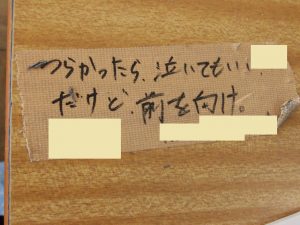 つらかったら、泣いてもいい、
だけど、前を向け。